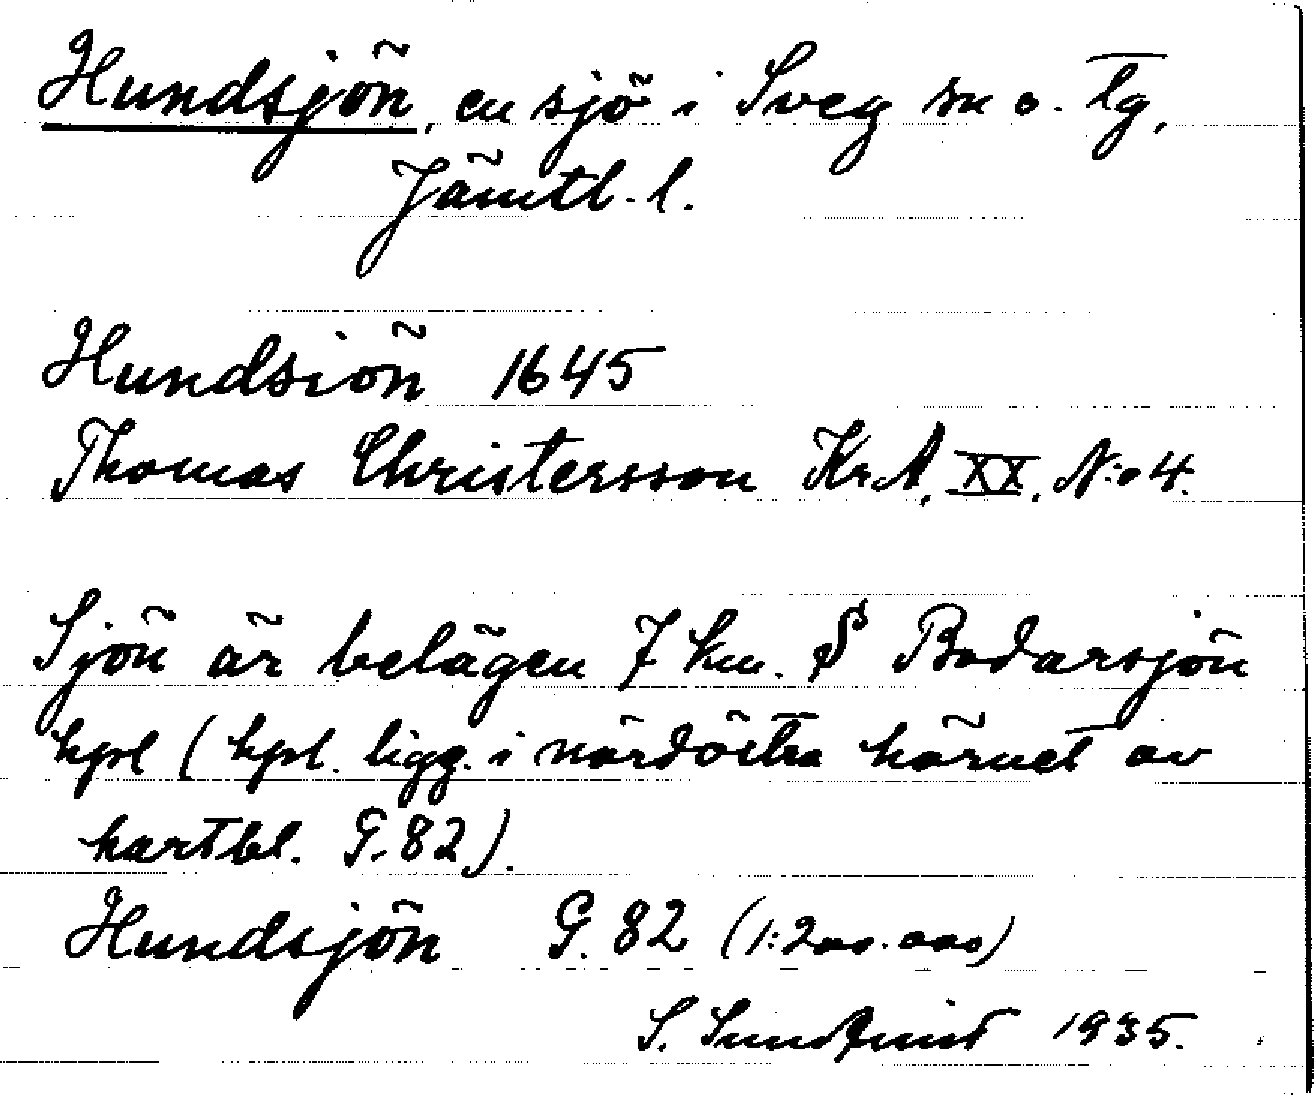 Hundsjön, en sjö i Sveg sn o. tg,
Jämtl. l.
Hundsiön 1645
Thomas Christersson Kr.A. XX. N:o 4.
Sjön är belägen 7 km. S Bodarsjön
hpl (hpl. ligg. i nordöstra hörnet av
kartbl. G. 82).
Hundsjön G. 82 (1:200.000)
S. Sundquist 1935.